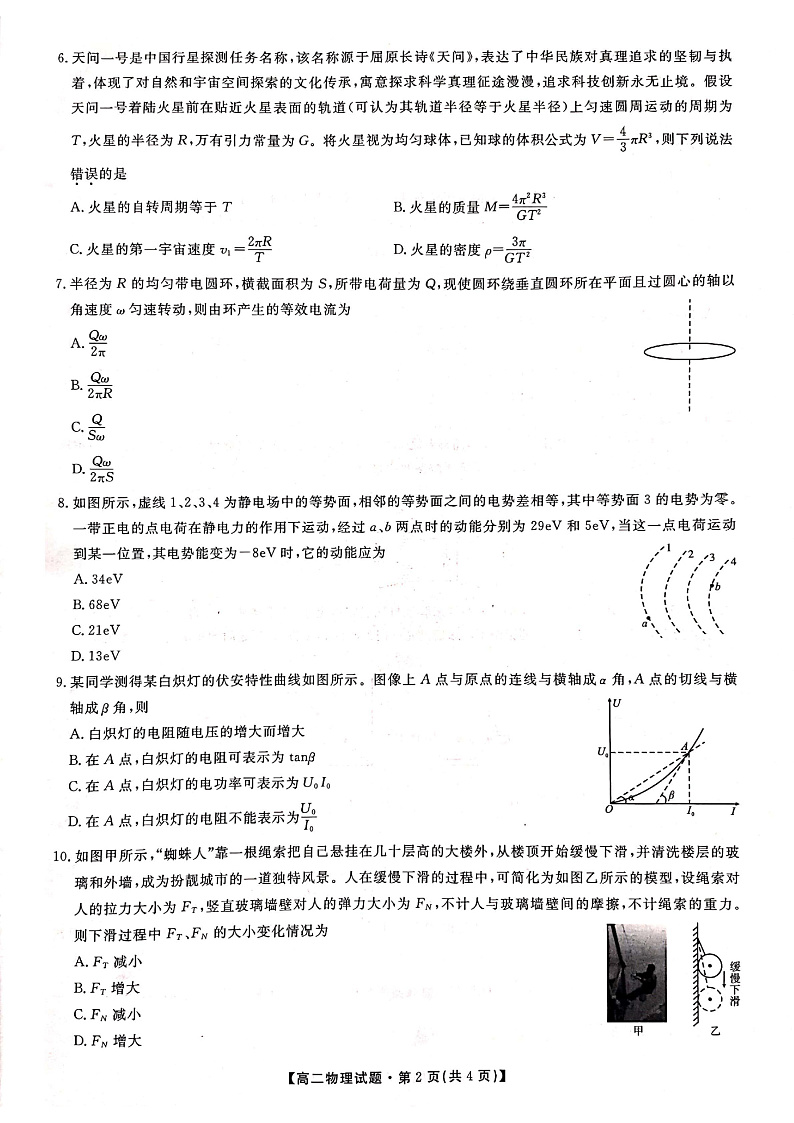 6. 天问一号是中国行星探测任务名称,该名称源于屈原长诗《天问》,表达了中华民族对真理追求的坚韧与执
着,体现了对自然和宇宙空间探索的文化传承,寓意探求科学真理征途漫漫,追求科技创新永无止境。假设
天问一号着陆火星前在贴近火星表面的轨道(可认为其轨道半径等于火星半径)上匀速圆周运动的周期为
T,火星的半径为 R,万有引力常量为 G。将火星视为均匀球体,已知球的体积公式为 V=4/3πR³,则下列说法
错误的是
A. 火星的自转周期等于 T B. 火星的质量 M=4π²R³/GT²
C. 火星的第一宇宙速度 v₁=2πR/T D. 火星的密度 ρ=3π/GT²
7. 半径为 R 的均匀带电圆环,横截面积为 S,所带电荷量为 Q,现使圆环绕垂直圆环所在平面且过圆心的轴以
角速度 ω 匀速转动,则由环产生的等效电流为
A. Qω/2π
B. Qω/2πR
C. Q/Sω
D. Qω/2πS
8. 如图所示,虚线 1、2、3、4 为静电场中的等势面,相邻的等势面之间的电势差相等,其中等势面 3 的电势为零。
一带正电的点电荷在静电力的作用下运动,经过 a、b 两点时的动能分别为 29eV 和 5eV,当这一点电荷运动
到某一位置,其电势能变为-8eV 时,它的动能应为
A. 34eV
B. 68eV
C. 21eV
D. 13eV
1 2 3 4
a b
9. 某同学测得某白炽灯的伏安特性曲线如图所示。图像上 A 点与原点的连线与横轴成 α 角,A 点的切线与横
轴成 β 角,则
A. 白炽灯的电阻随电压的增大而增大
B. 在 A 点,白炽灯的电阻可表示为 tanβ
C. 在 A 点,白炽灯的电功率可表示为 U₀I₀
D. 在 A 点,白炽灯的电阻不能表示为U₀/I₀
U
U₀ A
α β
O I₀ I
10. 如图甲所示,“蜘蛛人”靠一根绳索把自己悬挂在几十层高的大楼外,从楼顶开始缓慢下滑,并清洗楼层的玻
璃和外墙,成为扮靓城市的一道独特风景。人在缓慢下滑的过程中,可简化为如图乙所示的模型,设绳索对
人的拉力大小为 F_T,竖直玻璃墙壁对人的弹力大小为 F_N,不计人与玻璃墙壁间的摩擦,不计绳索的重力。
则下滑过程中 F_T、F_N 的大小变化情况为
A. F_T 减小
B. F_T 增大
C. F_N 减小
D. F_N 增大
缓慢下滑
甲 乙
【高二物理试题·第 2 页(共 4 页)】